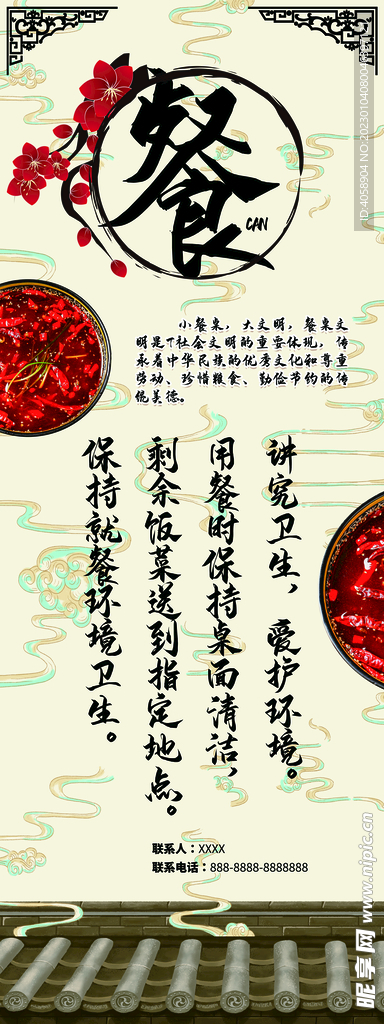 餐
CAN
小餐桌，大文明，餐桌文
明是T社会文明的重要体现，传
承着中华民族的优秀文化和尊重
劳动、珍惜粮食、勤俭节约的传
统美德。
讲究卫生，爱护环境。
用餐时保持桌面清洁，
剩余饭菜送到指定地点。
保持就餐环境卫生。
联系人：XXXX
联系电话：888-8888-8888888
昵享网 www.nipic.cn